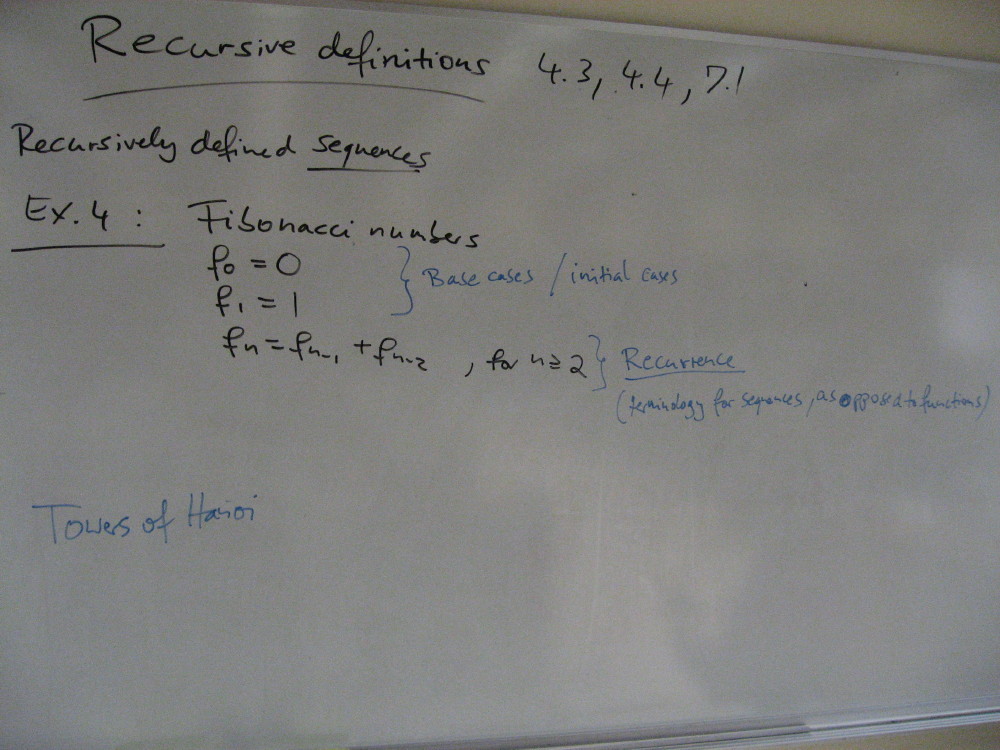 Recursive definitions 4.3, 4.4, 7.1
Recursively defined sequences
Ex. 4 : Fibonacci numbers
f₀ = 0
f₁ = 1 } Base cases / initial cases
fₙ = fₙ₋₁ + fₙ₋₂ , for n ≥ 2 } Recurrence
(terminology for sequences, as opposed to functions)
Towers of Hanoi